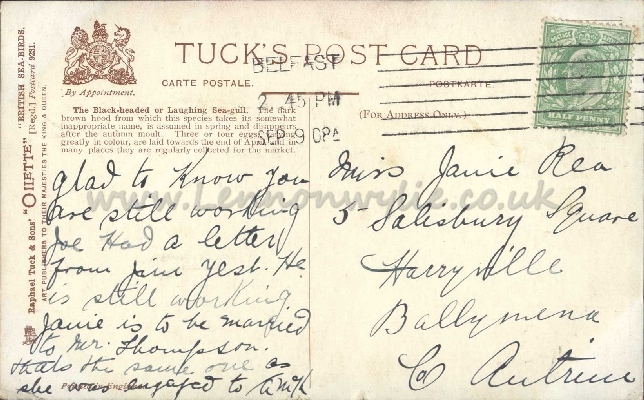 TUCK'S POST CARD
By Appointment.
CARTE POSTALE.
POSTKARTE.
(For Address Only.)
BELFAST
2 45 PM
SEP 9
HALF PENNY
The Black-headed or Laughing Sea-gull. The dark
brown hood from which this species takes its somewhat
inappropriate name, is assumed in spring and disappears
after the autumn moult. Three or four eggs,
greatly in colour, are laid towards the end of April, and in
many places they are regularly collected for the market.
Raphael Tuck & Sons' "OILETTE" "BRITISH SEA-BIRDS.
[Regd.] Postcard 9231.
ART PUBLISHERS TO THEIR MAJESTIES THE KING & QUEEN.
glad to know you
are still working
Joe Had a letter
from Jim yest. He
is still working
Janie is to be married
to Mr. Thompson.
thats the same one as
she was engaged to
Miss Janie Rea
5 Salisbury Square
Harryville
Ballymena
Co Antrim
www.Lennonwylie.co.uk